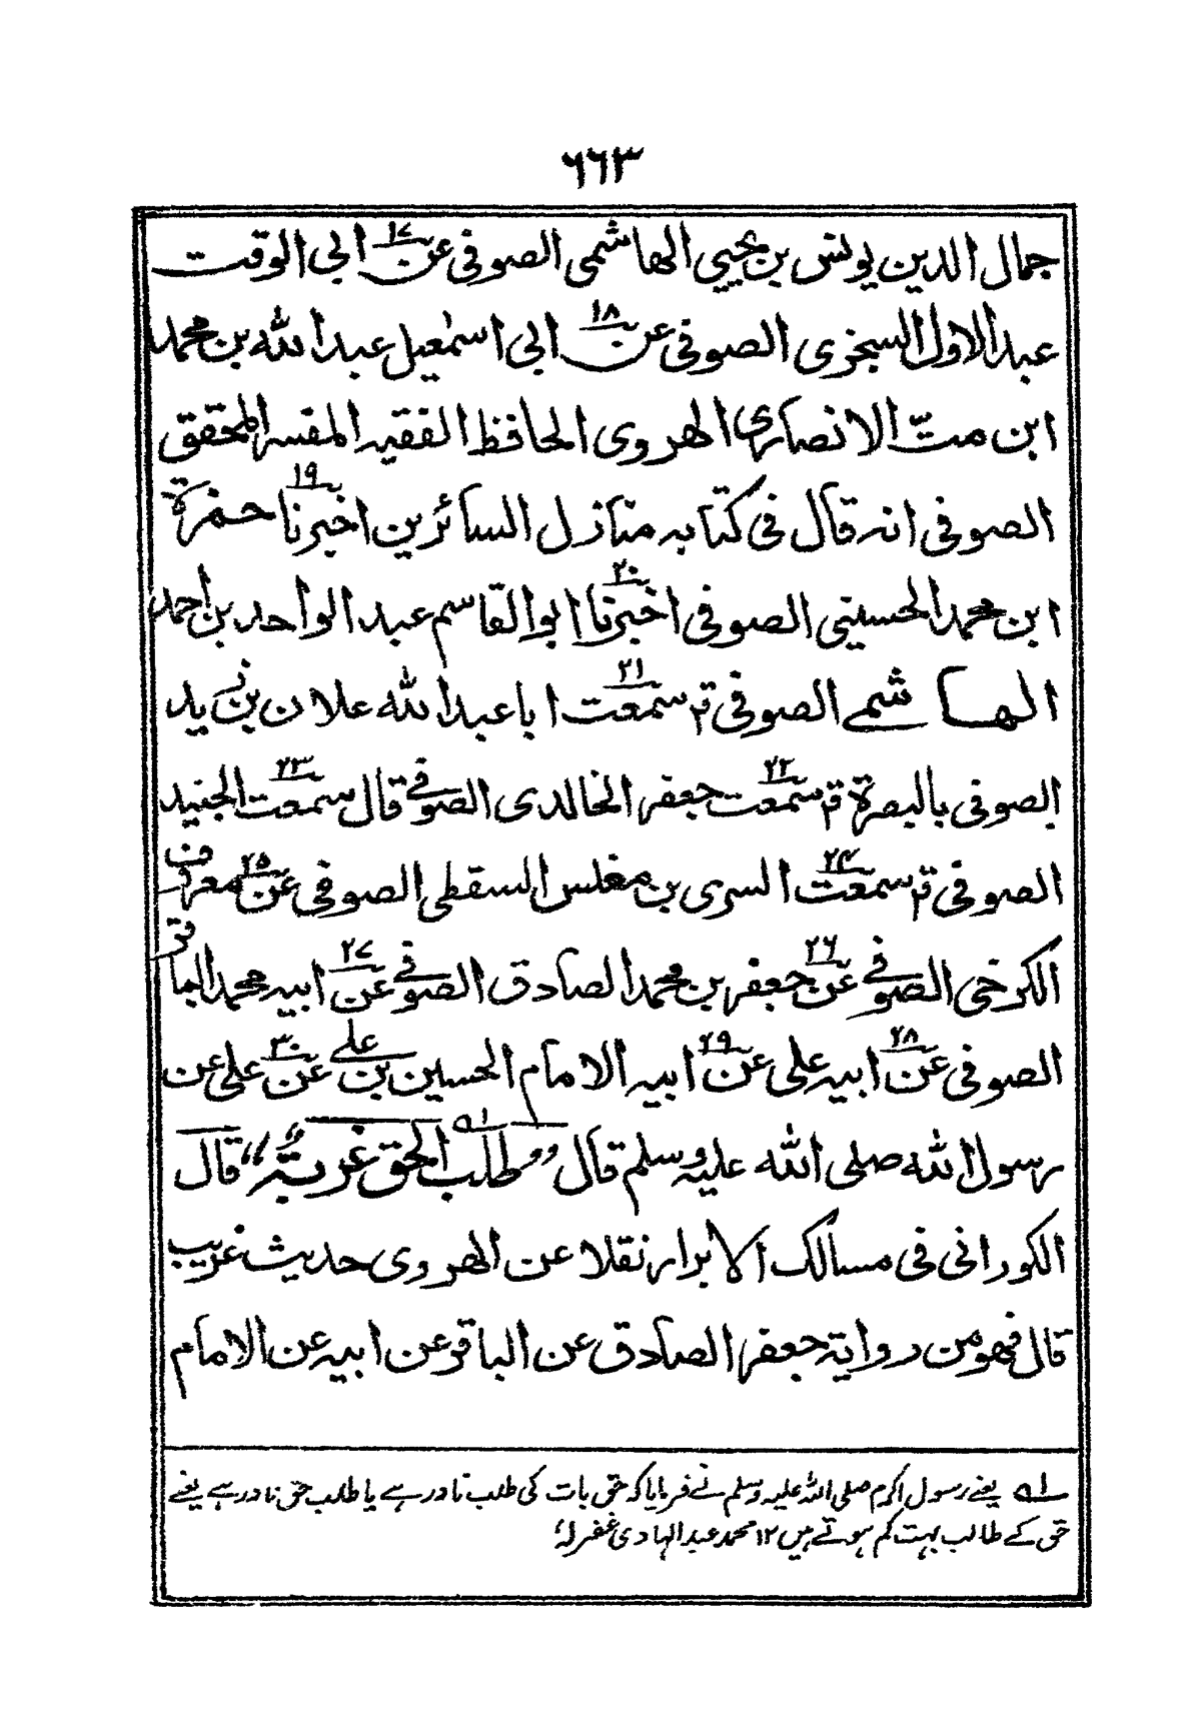 ٦٦٣
جمال الدين يونس بن يحيي الهاشمى الصوفى عن ١٧ ابى الوقت
عبد الاول السجزى الصوفى عن ١٨ ابى اسمٰعيل عبد الله بن محمد
ابن متّ الانصارى الهروى الحافظ الفقيه المفسر المحقق
الصوفى انه قال فى كتابه منازل السائرين اخبرنا ١٩ حمزة
ابن محمد الحسينى الصوفى اخبرنا ٢٠ ابو القاسم عبد الواحد بن احمد
الهاشمے الصوفى قم سمعت ٢١ ابا عبد الله علان بن زيد
الصوفى بالبصرة قم سمعت ٢٢ جعفر الخالدى الصوفے قال سمعت ٢٣ الجنيد
الصوفى قم سمعت ٢٤ السرى بن مغلس السقطى الصوفى عن ٢٥ معروف
الكرخى الصوفے عن ٢٦ جعفر بن محمد الصادق الصوفے عن ٢٧ ابيه محمد الباقر
الصوفى عن ٢٨ ابيه على عن ٢٩ ابيه الامام الحسين بن علے عن ٣٠ على عن
رسول الله صلى الله عليه وسلم قال “طلب الحق غربةٌ” ١ه قال
الكورانى فى مسالك الابرار نقلا عن الهروى حديث غريب
قال فهو من رواية جعفر الصادق عن الباقر عن ابيه عن الامام
١ه یعنے رسول اکرم صلی اللہ علیہ وسلم نے فرمایا کہ حق بات کی طلب نادر ہے یا طلب حق نادر ہے یعنے
حق کے طالب بہت کم ہوتے ہیں ١٢ محمد عبد الہادی غفر لہٗ